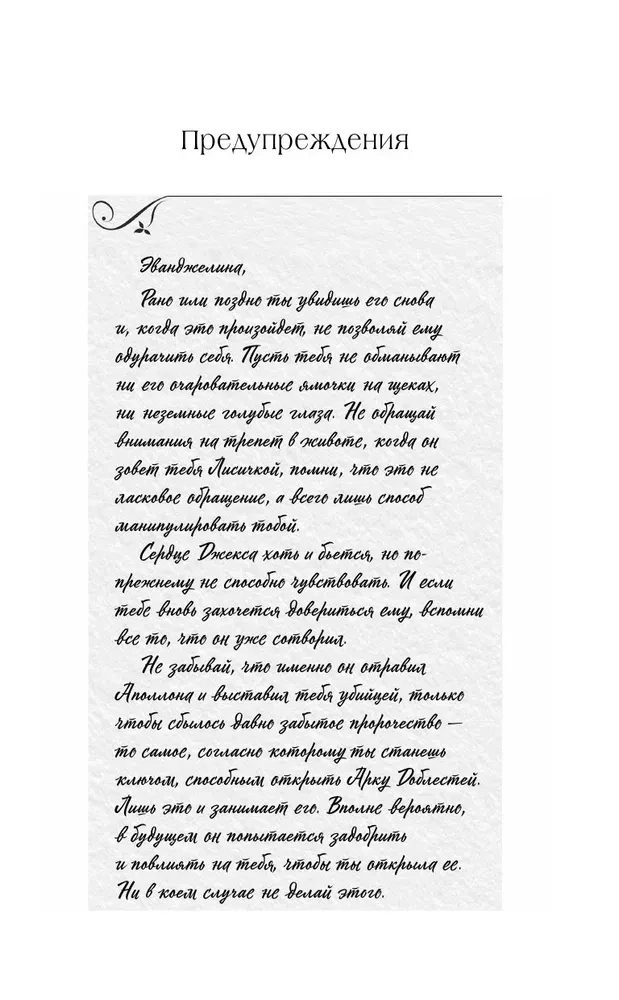 Предупреждения
Эванджелина,
Рано или поздно ты увидишь его снова
и, когда это произойдет, не позволяй ему
одурачить себя. Пусть тебя не обманывают
ни его очаровательные ямочки на щеках,
ни неземные голубые глаза. Не обращай
внимания на трепет в животе, когда он
зовет тебя Лисичкой, помни, что это не
ласковое обращение, а всего лишь способ
манипулировать тобой.
Сердце Джекса хоть и бьется, но по-
прежнему не способно чувствовать. И если
тебе вновь захочется довериться ему, вспомни
все то, что он уже сотворил.
Не забывай, что именно он отравил
Аполлона и выставил тебя убийцей, только
чтобы сбылось давно забытое пророчество —
то самое, согласно которому ты станешь
ключом, способным открыть Арку Доблестей.
Лишь это и занимает его. Вполне вероятно,
в будущем он попытается задобрить
и повлиять на тебя, чтобы ты открыла ее.
Ни в коем случае не делай этого.